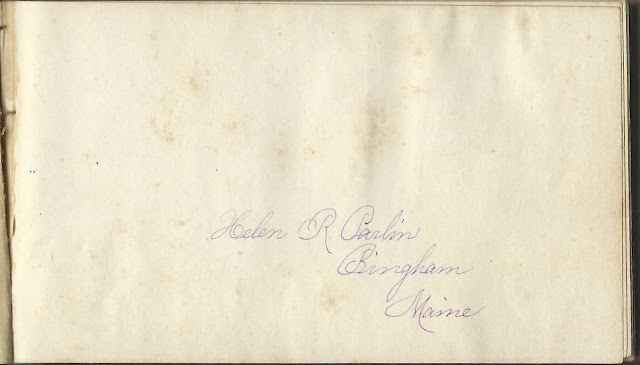 Helen R. Parlin
Bingham
Maine